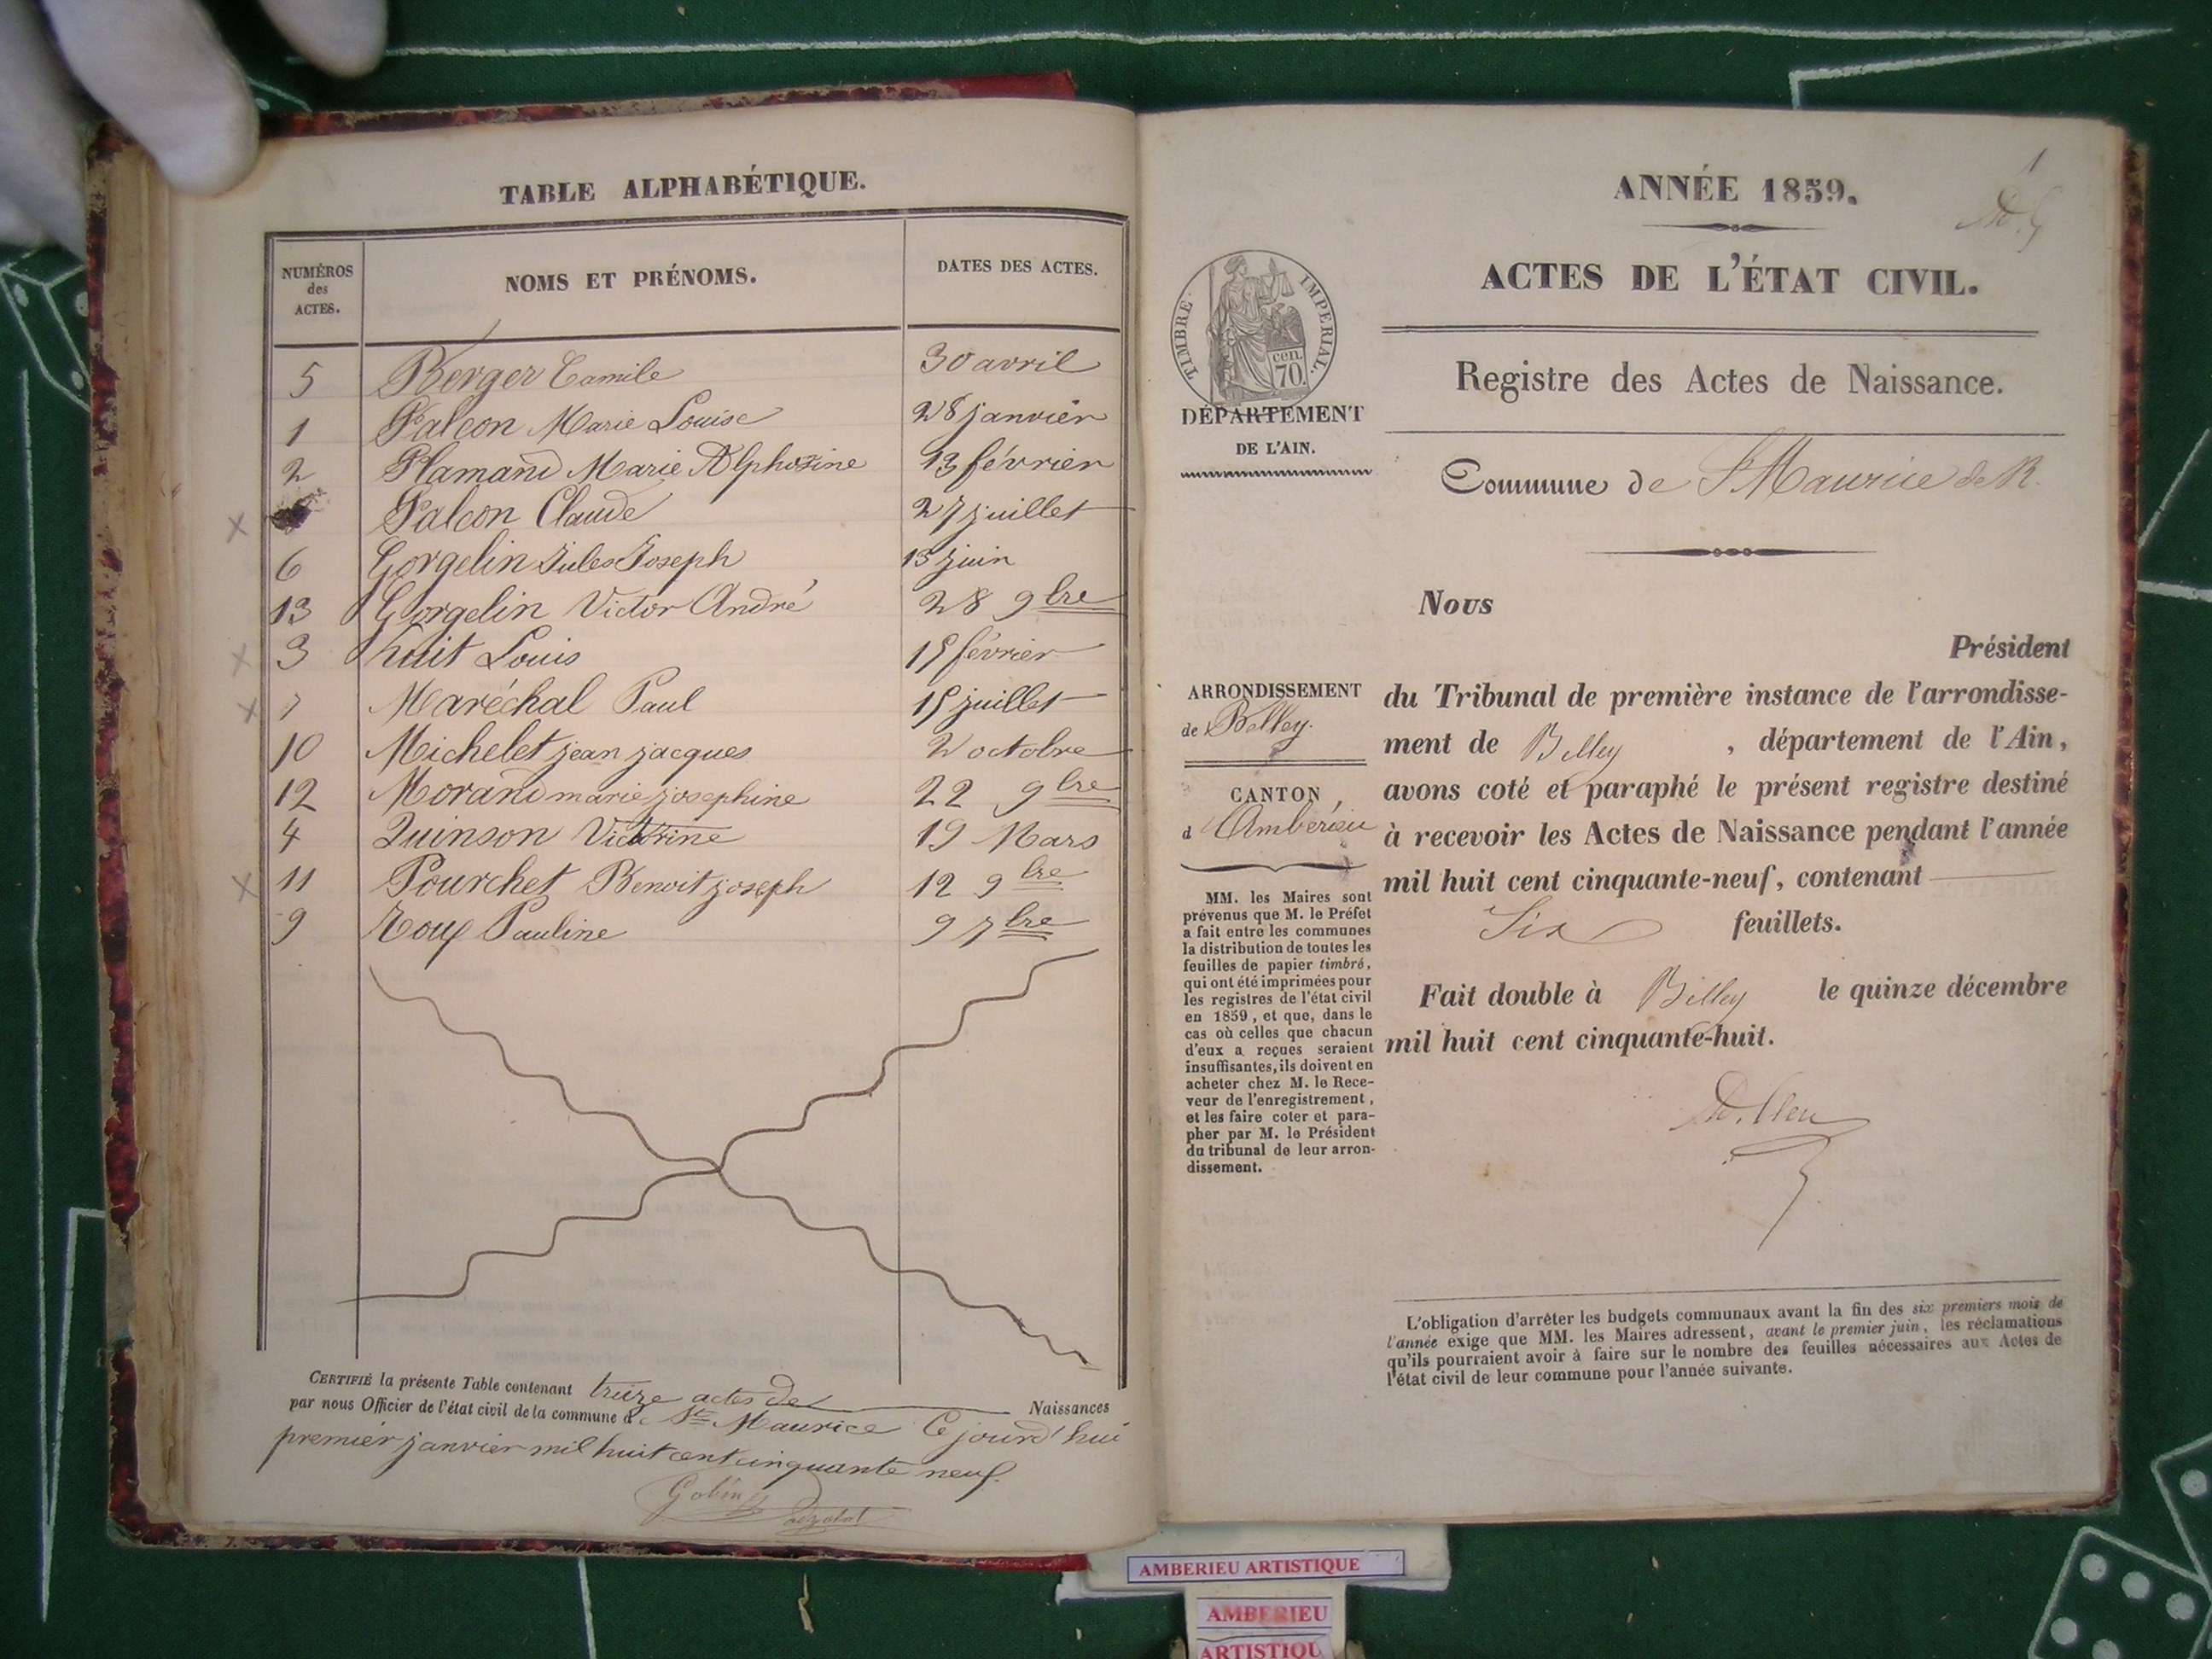 TABLE ALPHABÉTIQUE.
NUMÉROS des ACTES.
NOMS ET PRÉNOMS.
DATES DES ACTES.
5 Berger Camile 30 avril
1 Falcon Marie Louise 28 janvier
2 Flamand Marie Alphosine 13 février
Falcon Claude 27 juillet
6 Gorgelin Jules Joseph 13 juin
13 Gorgelin Victor André 28 9bre
3 huit Louis 15 février
7 Maréchal Paul 15 juillet
10 Michelet jean jacques 2 octobre
12 Morand marie josephine 22 9bre
4 Quinson Victorine 19 Mars
11 Pourchet Benoit joseph 12 9bre
9 Roux Pauline 9 7bre
CERTIFIÉ la présente Table contenant treize actes de Naissances
par nous Officier de l'état civil de la commune de St Maurice Ce jourd'hui
premier janvier mil huit cent cinquante neuf.
Gobin
1
ANNÉE 1859.
ACTES DE L'ÉTAT CIVIL.
TIMBRE IMPERIAL.
70 cen.
DÉPARTEMENT
DE L'AIN.
Registre des Actes de Naissance.
Commune de St Maurice de R.
Nous
Président
ARRONDISSEMENT
de Belley.
CANTON
d'Ambérieu
MM. les Maires sont
prévenus que M. le Préfet
a fait entre les communes
la distribution de toutes les
feuilles de papier timbré,
qui ont été imprimées pour
les registres de l'état civil
en 1859, et que, dans le
cas où celles que chacun
d'eux a reçues seraient
insuffisantes, ils doivent en
acheter chez M. le Rece-
veur de l'enregistrement,
et les faire coter et para-
pher par M. le Président
du tribunal de leur arron-
dissement.
du Tribunal de première instance de l'arrondisse-
ment de Belley, département de l'Ain,
avons coté et paraphé le présent registre destiné
à recevoir les Actes de Naissance pendant l'année
mil huit cent cinquante-neuf, contenant
Six feuillets.
Fait double à Belley le quinze décembre
mil huit cent cinquante-huit.
L'obligation d'arrêter les budgets communaux avant la fin des six premiers mois de
l'année exige que MM. les Maires adressent, avant le premier juin, les réclamations
qu'ils pourraient avoir à faire sur le nombre des feuilles nécessaires aux Actes de
l'état civil de leur commune pour l'année suivante.
AMBERIEU ARTISTIQUE
AMBERIEU
ARTISTIQU